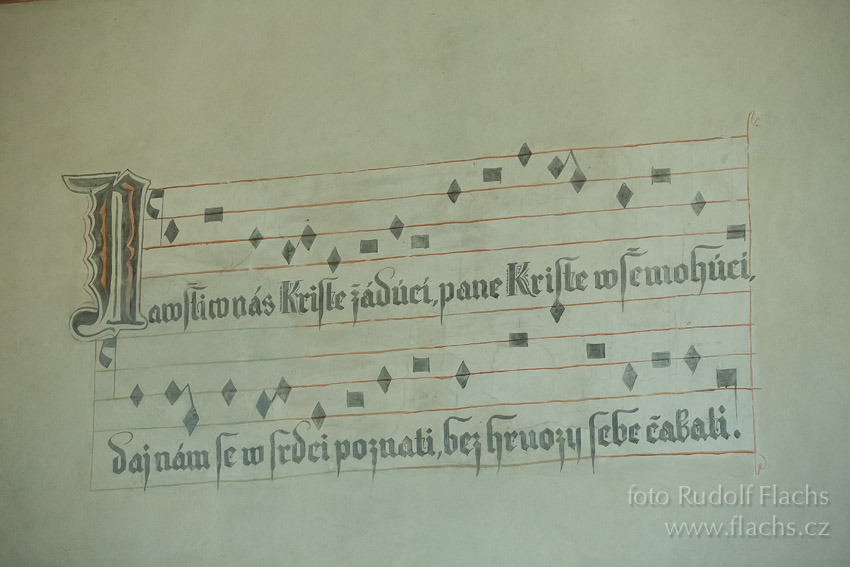 Nawštiw nás Kriste žádúcí, pane Kriste wšemohúcí,
daj nám se w srdci poznati, bez hruozy sebe čakati.
foto Rudolf Flachs
www.flachs.cz